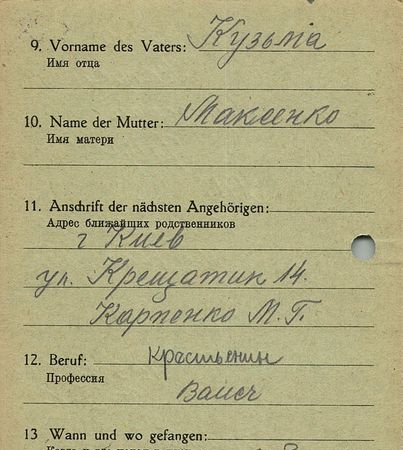 9. Vorname des Vaters: Кузьма
Имя отца
10. Name der Mutter: Макиенко
Имя матери
11. Anschrift der nächsten Angehörigen:
Адрес ближайших родственников
г Киев
ул. Крещатик 14.
Карпенко М. Г.
12. Beruf: Крестьенин
Профессия
Bauer
13 Wann und wo gefangen: